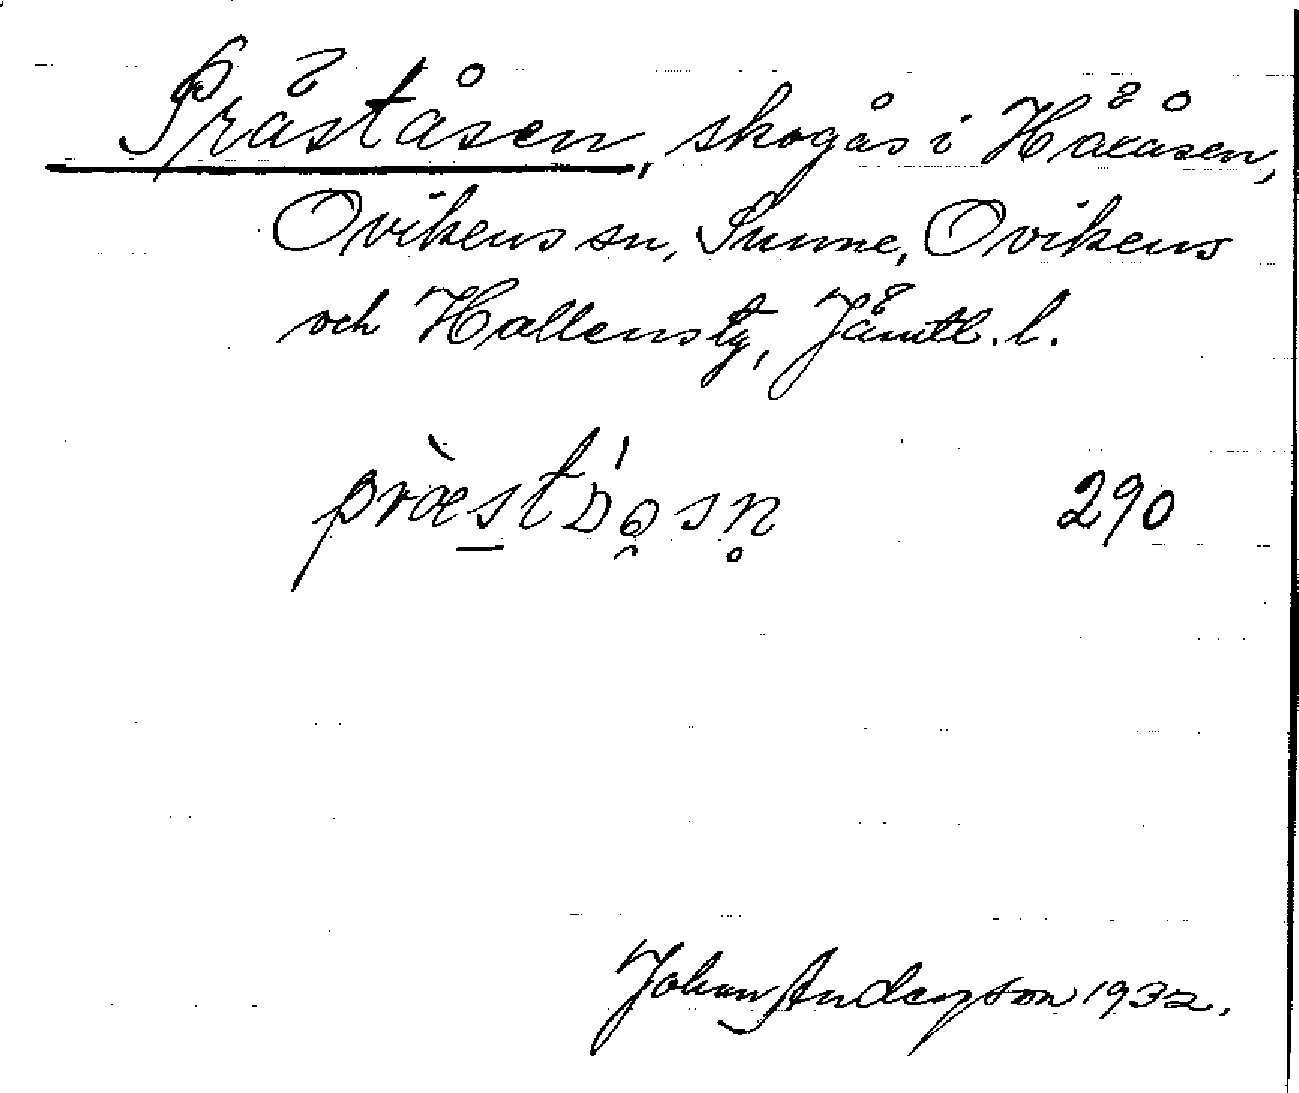 Präståsen, skogås i Häxåsen,
Ovikens sn, Sunne, Ovikens
och Hallens tg, Jämtl. l.
290
Johan Anderzson 1932.